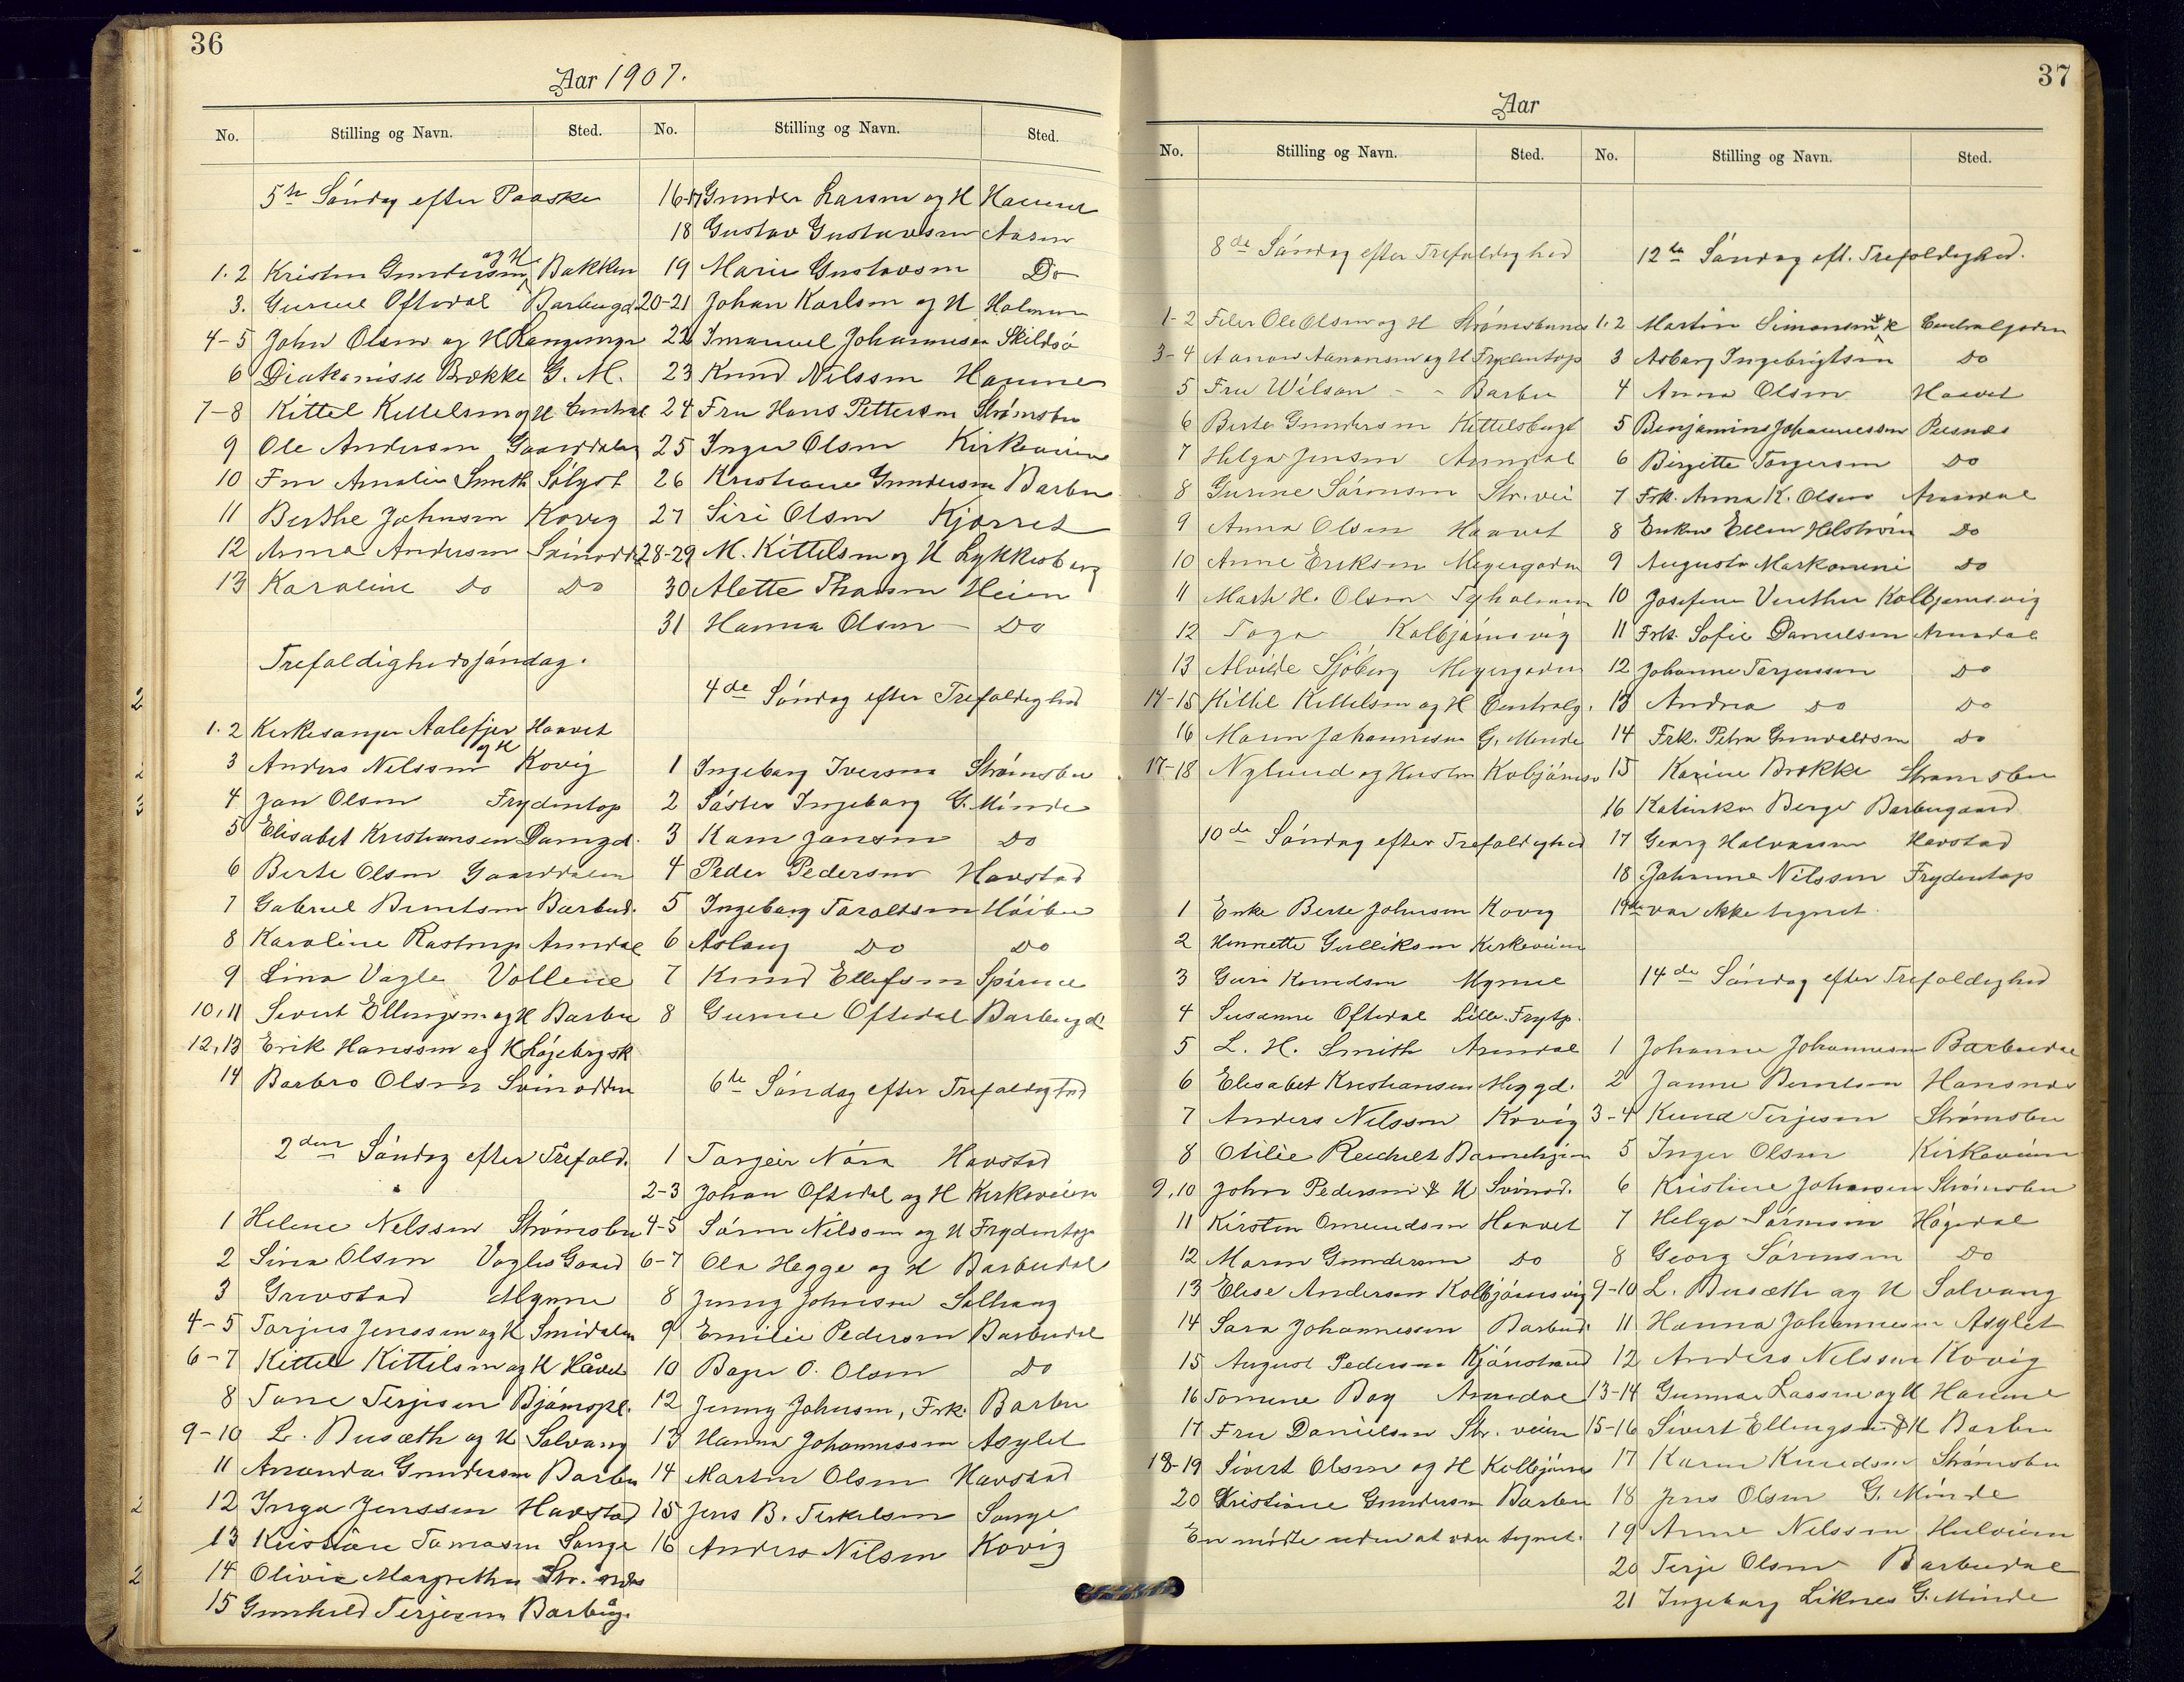 36
Aar 1907.
No. Stilling og Navn. Sted.
5te Søndag efter Paaske
1.2 Kristen Gundersen og H Bakken
3. Gurine Oftedal Barbugd
4-5 John Olsen og H Langsæ
6 Diakonisse Brække G. M.
7-8 Kittel Kittelsen og H Central
9 Ole Andersen Gaarddalen
10 Fru Amalie Smith Sølyst
11 Berthe Johnsen Kovig
12 Anna Andersen Svinodd
13 Karoline Do Do
Trefoldighedssøndag.
1.2 Kirkesanger Aalefjer og H Haavet
3 Anders Nelssen Kovig
4 Jan Olsen Frydentop
5 Elisabet Kristiansen Damgd.
6 Berte Olsen Gaarddalen
7 Gabriel Berntsen Barbud.
8 Karoline Rastrup Arendal
9 Lina Vagle Vollene
10,11 Sivert Ellingsen og H Barbu
12,13 Erik Hanssen og H Løgebrgsk
14 Barbro Olsen Svinodden
2den Søndag efter Trefold.
1 Helene Nelssen Strømsbu
2 Sina Olsen Vagles Gaard
3 Grevstad Myrene
4-5 Torjus Jenssen og H Smidalen
6-7 Kittel Kittilsen og H Håvet
8 Tone Terjesen Bjørnspl.
9-10 L. Busæth og H Solvang
11 Amanda Gundersen Barbu
12 Inga Jenssen Havstad
13 Kristiane Tomasen Songe
14 Olivia Margrethe Str.
15 Gunhild Terjesen Barbug.
No. Stilling og Navn. Sted.
16-17 Gunder Larsen og H Havne
18 Gustav Gustavsen Aasen
19 Marie Gustavsen Do
20-21 Johan Karlsen og H Holmen
22 Imanuel Johannesen Skilsø
23 Knud Nilssen Havne
24 Fru Hans Pettersen Strømsbu
25 Inger Olsen Kirkeveien
26 Kristiane Gundersen Barbu
27 Siri Olsen Kjorret
28-29 M. Kittelsen og H Lykkesberg
30 Alette Thorsen Heien
31 Hanna Olsen Do
4de Søndag efter Trefoldighed
1 Ingeborg Iversen Strømsbu
2 Søster Ingeborg G. Minde
3 Karn Jansen Do
4 Peder Pedersen Havstad
5 Ingeborg Taraldsen Høibu
6 Aslaug Do Do
7 Knud Ellefsen Spirene
8 Gurine Oftedal Barbugd
6te Søndag efter Trefoldighed
1 Torgeir Nøra Havstad
2-3 Johan Oftedal og H Kirkeveien
4-5 Søren Nilssen og H Frydentop
6-7 Ola Hegge og H Barbudal
8 Jenny Johnsen Solhaug
9 Emilie Pedersen Barbudal
10 Bager O. Olsen Do
12 Jenny Johnsen, Frk. Barbu
13 Hanna Johannessen Asylet
14 Martin Olsen Havstad
15 Jens B. Terkelsen Songe
16 Anders Nilsen Kovig
37
Aar
No. Stilling og Navn. Sted.
8de Søndag efter Trefoldighed
1-2 Feler Ole Olsen og H Strømsbunes
3-4 Aanon Aanonsen og H Frydentop
5 Fru Wilson - - Barbu
6 Berte Gundersen Kittelsbugt
7 Helga Jensen Arendal
8 Gurine Sørensen Str. vei
9 Anna Olsen Haavet
10 Anne Eriksen Meyergaden
11 Marte H. Olsen Tyholmen
12 Toga Kolbjørnsvig
13 Alvilde Sjøberg Meyergaden
14-15 Kittel Kittelsen og H Centralg.
16 Maren Johannesen G. Minde
17-18 Nylund og Hustru Kolbjørnsv
10de Søndag efter Trefoldighed
1 Enke Berte Johnsen Kovig
2 Henriette Gulliksen Kirkeveien
3 Guri Knudsen Myrene
4 Susanne Oftedal Lille Frytp.
5 L. H. Smith Arendal
6 Elisabet Kristiansen Meygd.
7 Anders Nelssen Kovig
8 Otilie Reichelt Barnehjem
9.10 John Pedersen & H Svinod.
11 Kirsten Omundsen Haavet
12 Maren Gundersen Do
13 Elise Andersen Kolbjørnsvig
14 Sara Johannessen Barbud.
15 August Pedersen Kjønstrand
16 Tomine Bog Arendal
17 Fru Danielsen Str. veien
18-19 Sivert Olsen og H Kolbjørns
20 Kristiane Gundersen Barbu
En mødte uden at være tegnet.
No. Stilling og Navn. Sted.
12te Søndag eft. Trefoldighed.
1.2 Martin Simonsen & H Centralgaden
3 Asborg Ingebrigtsen Do
4 Anna Olsen Haavet
5 Benjamins Johannessen Pusnes
6 Birgitte Torgersen Do
7 Frk. Anna K. Olsen Arendal
8 Enken Ellen Helstrøm Do
9 Augusta Markomini Do
10 Josefine Vinther Kolbjørnsvig
11 Frk. Sofie Danielsen Arendal
12 Johanne Torjussen Do
13 Andrea Do Do
14 Frk. Petra Gunvaldsen Do
15 Karine Brække Strømsbu
16 Katinka Berge Barbugaard
17 Georg Halvorsen Havstad
18 Johanne Nilssen Frydentop
19de var ikke tegnet.
14de Søndag efter Trefoldighed
1 Johanne Johannesen Barbudal
2 Janne Berntsen Hansnes
3-4 Knud Terjesen Strømsbu
5 Inger Olsen Kirkeveien
6 Kristine Johansen Strømsbu
7 Helga Sørensen Høgedal
8 Georg Sørensen Do
9-10 L. Busæth og H Solvang
11 Hanna Johannesen Asylet
12 Anders Nelssen Kovig
13-14 Gunnar Lassene og H Havne
15-16 Sivert Ellingsen & H Barbu
17 Karen Knudsen Strømsbu
18 Jens Olsen G. Minde
19 Anne Nelssen Hulveien
20 Terje Olsen Barbudal
21 Ingeborg Liknes G. Minde